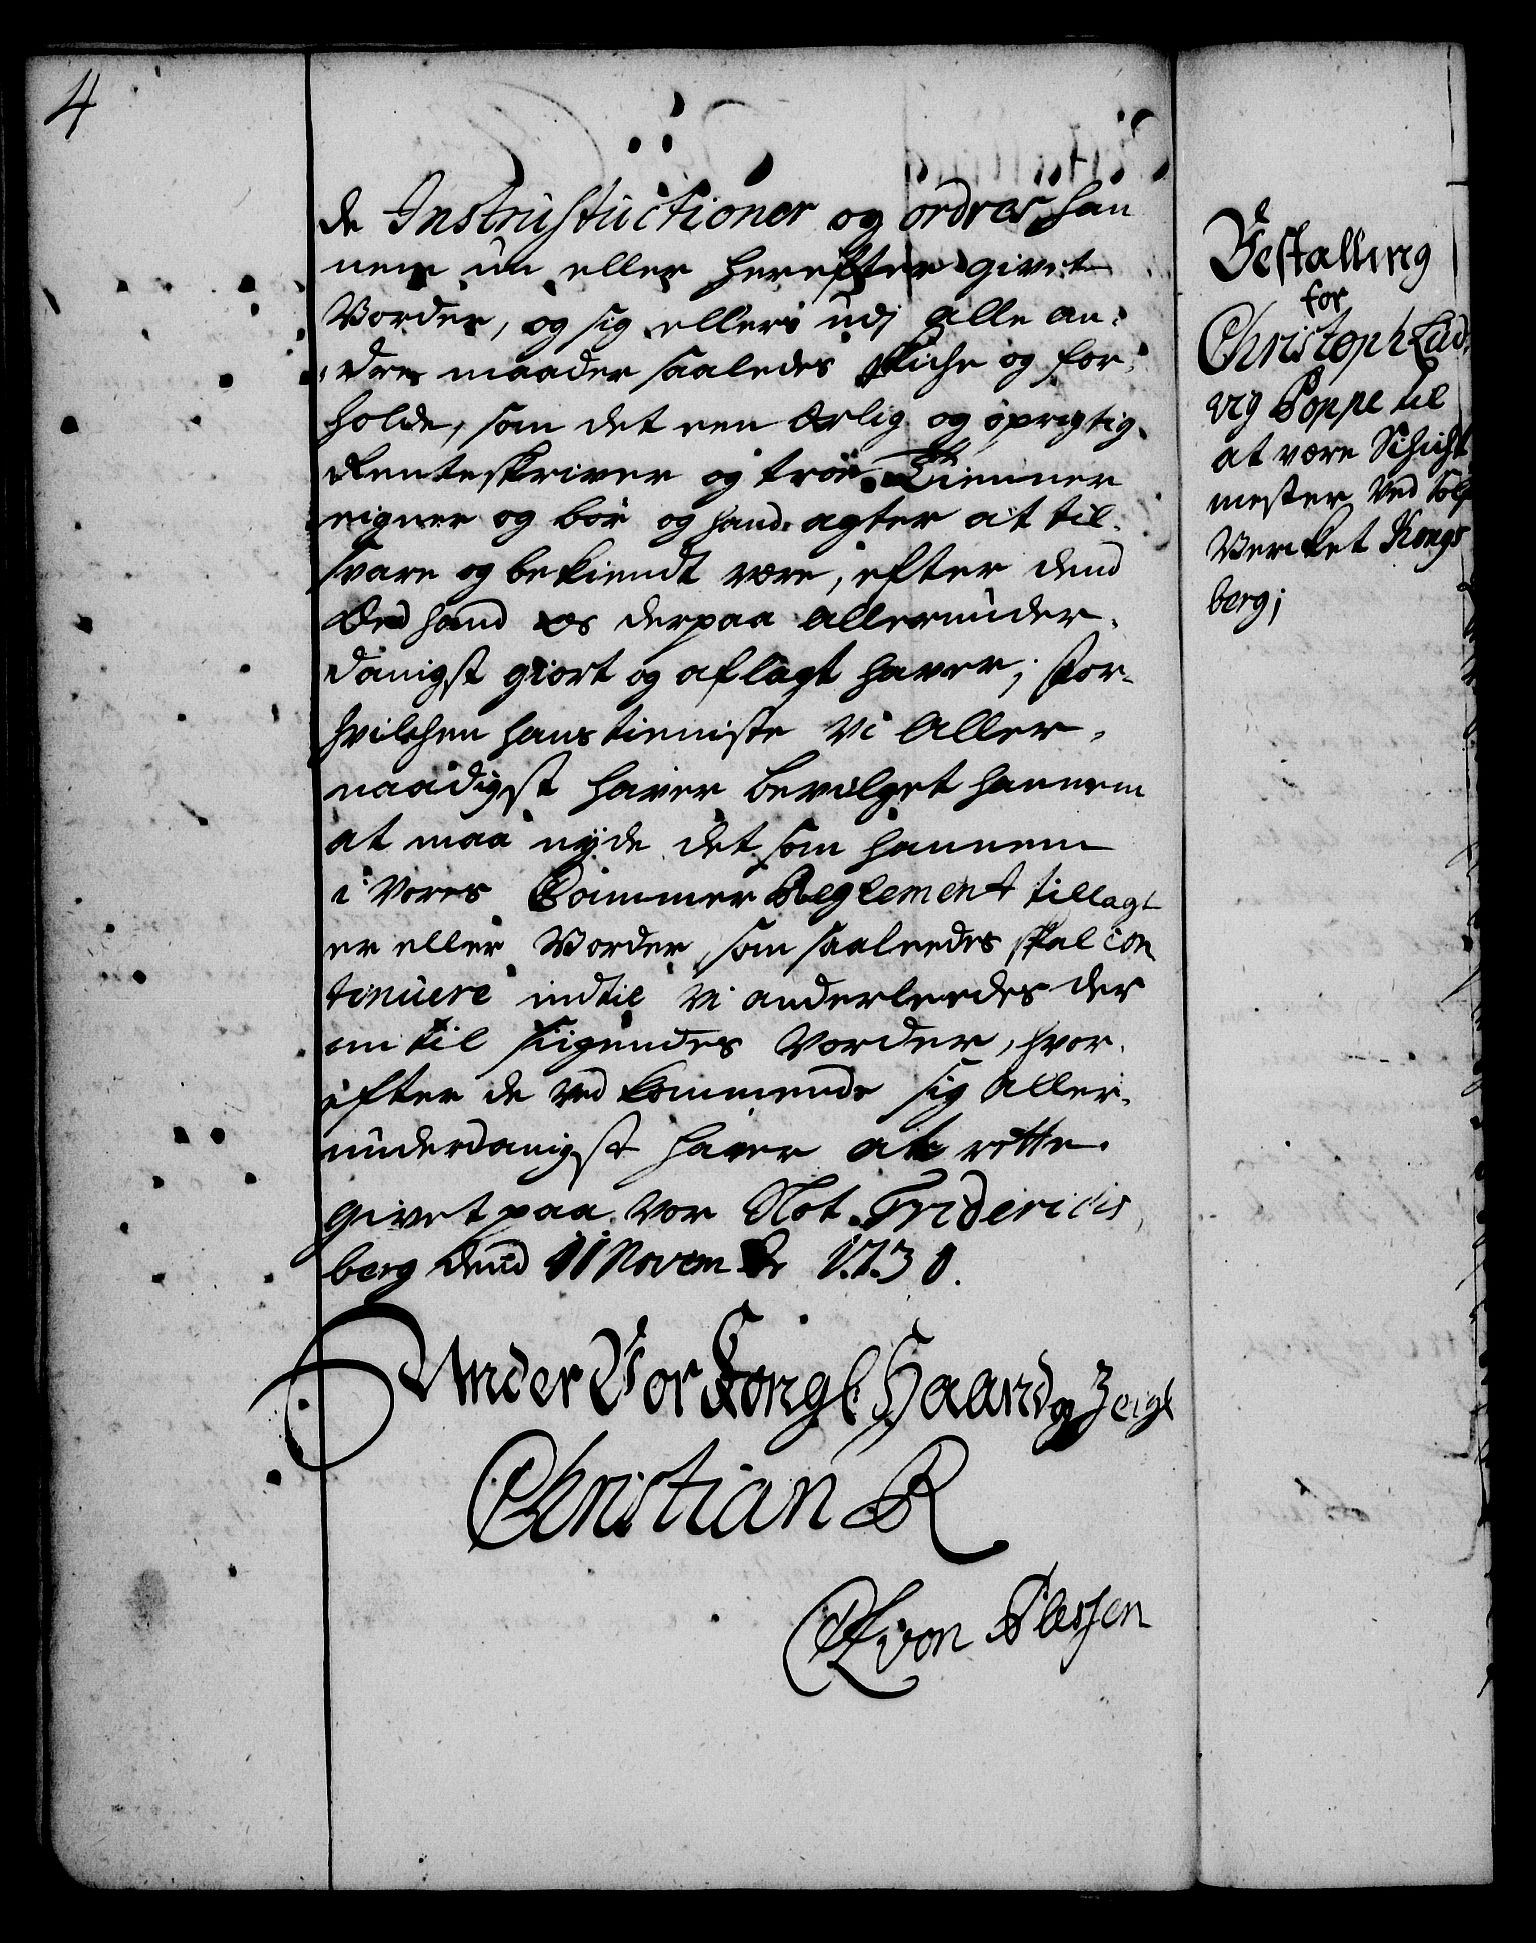 4
de Instrustuctioner og ordres han
nem nu eller herefter givet
Vorder, og sig ellers udj alle an¬
dre maader saaledes skiche og for¬
holde, som det een ærlig og oprigtig
Renteskriver og troe Tienner
eigner og bör og hand agter at til¬
svare og bekiendt være, efter dend
Eed hand os derpaa allerunder¬
danigst giort og aflagt haver; for¬
hvilchen hans tieniste Vi Aller¬
naadigst haver bevilget hannem
at maa nyde det som hannem
i Vores Cammer Reglement tillagt
er eller Vorder, som saaleedes skal con
tinuere indtil Vi anderleedes der
om til sigendes Vorder, hvor¬
efter de Ved kommende sig aller¬
underdanigst haver at rette.
givet paa Vor Slot Friderichs
berg dend 11 Novembr 1730.
Under Vor Kongl Haand og Zeigl
Christian R
C A von Plessen
Bestalling
for
Christoph Lud¬
vig Poppe til
at være Schicht
mester Ved Sölf
Vercket Kongs
berg;